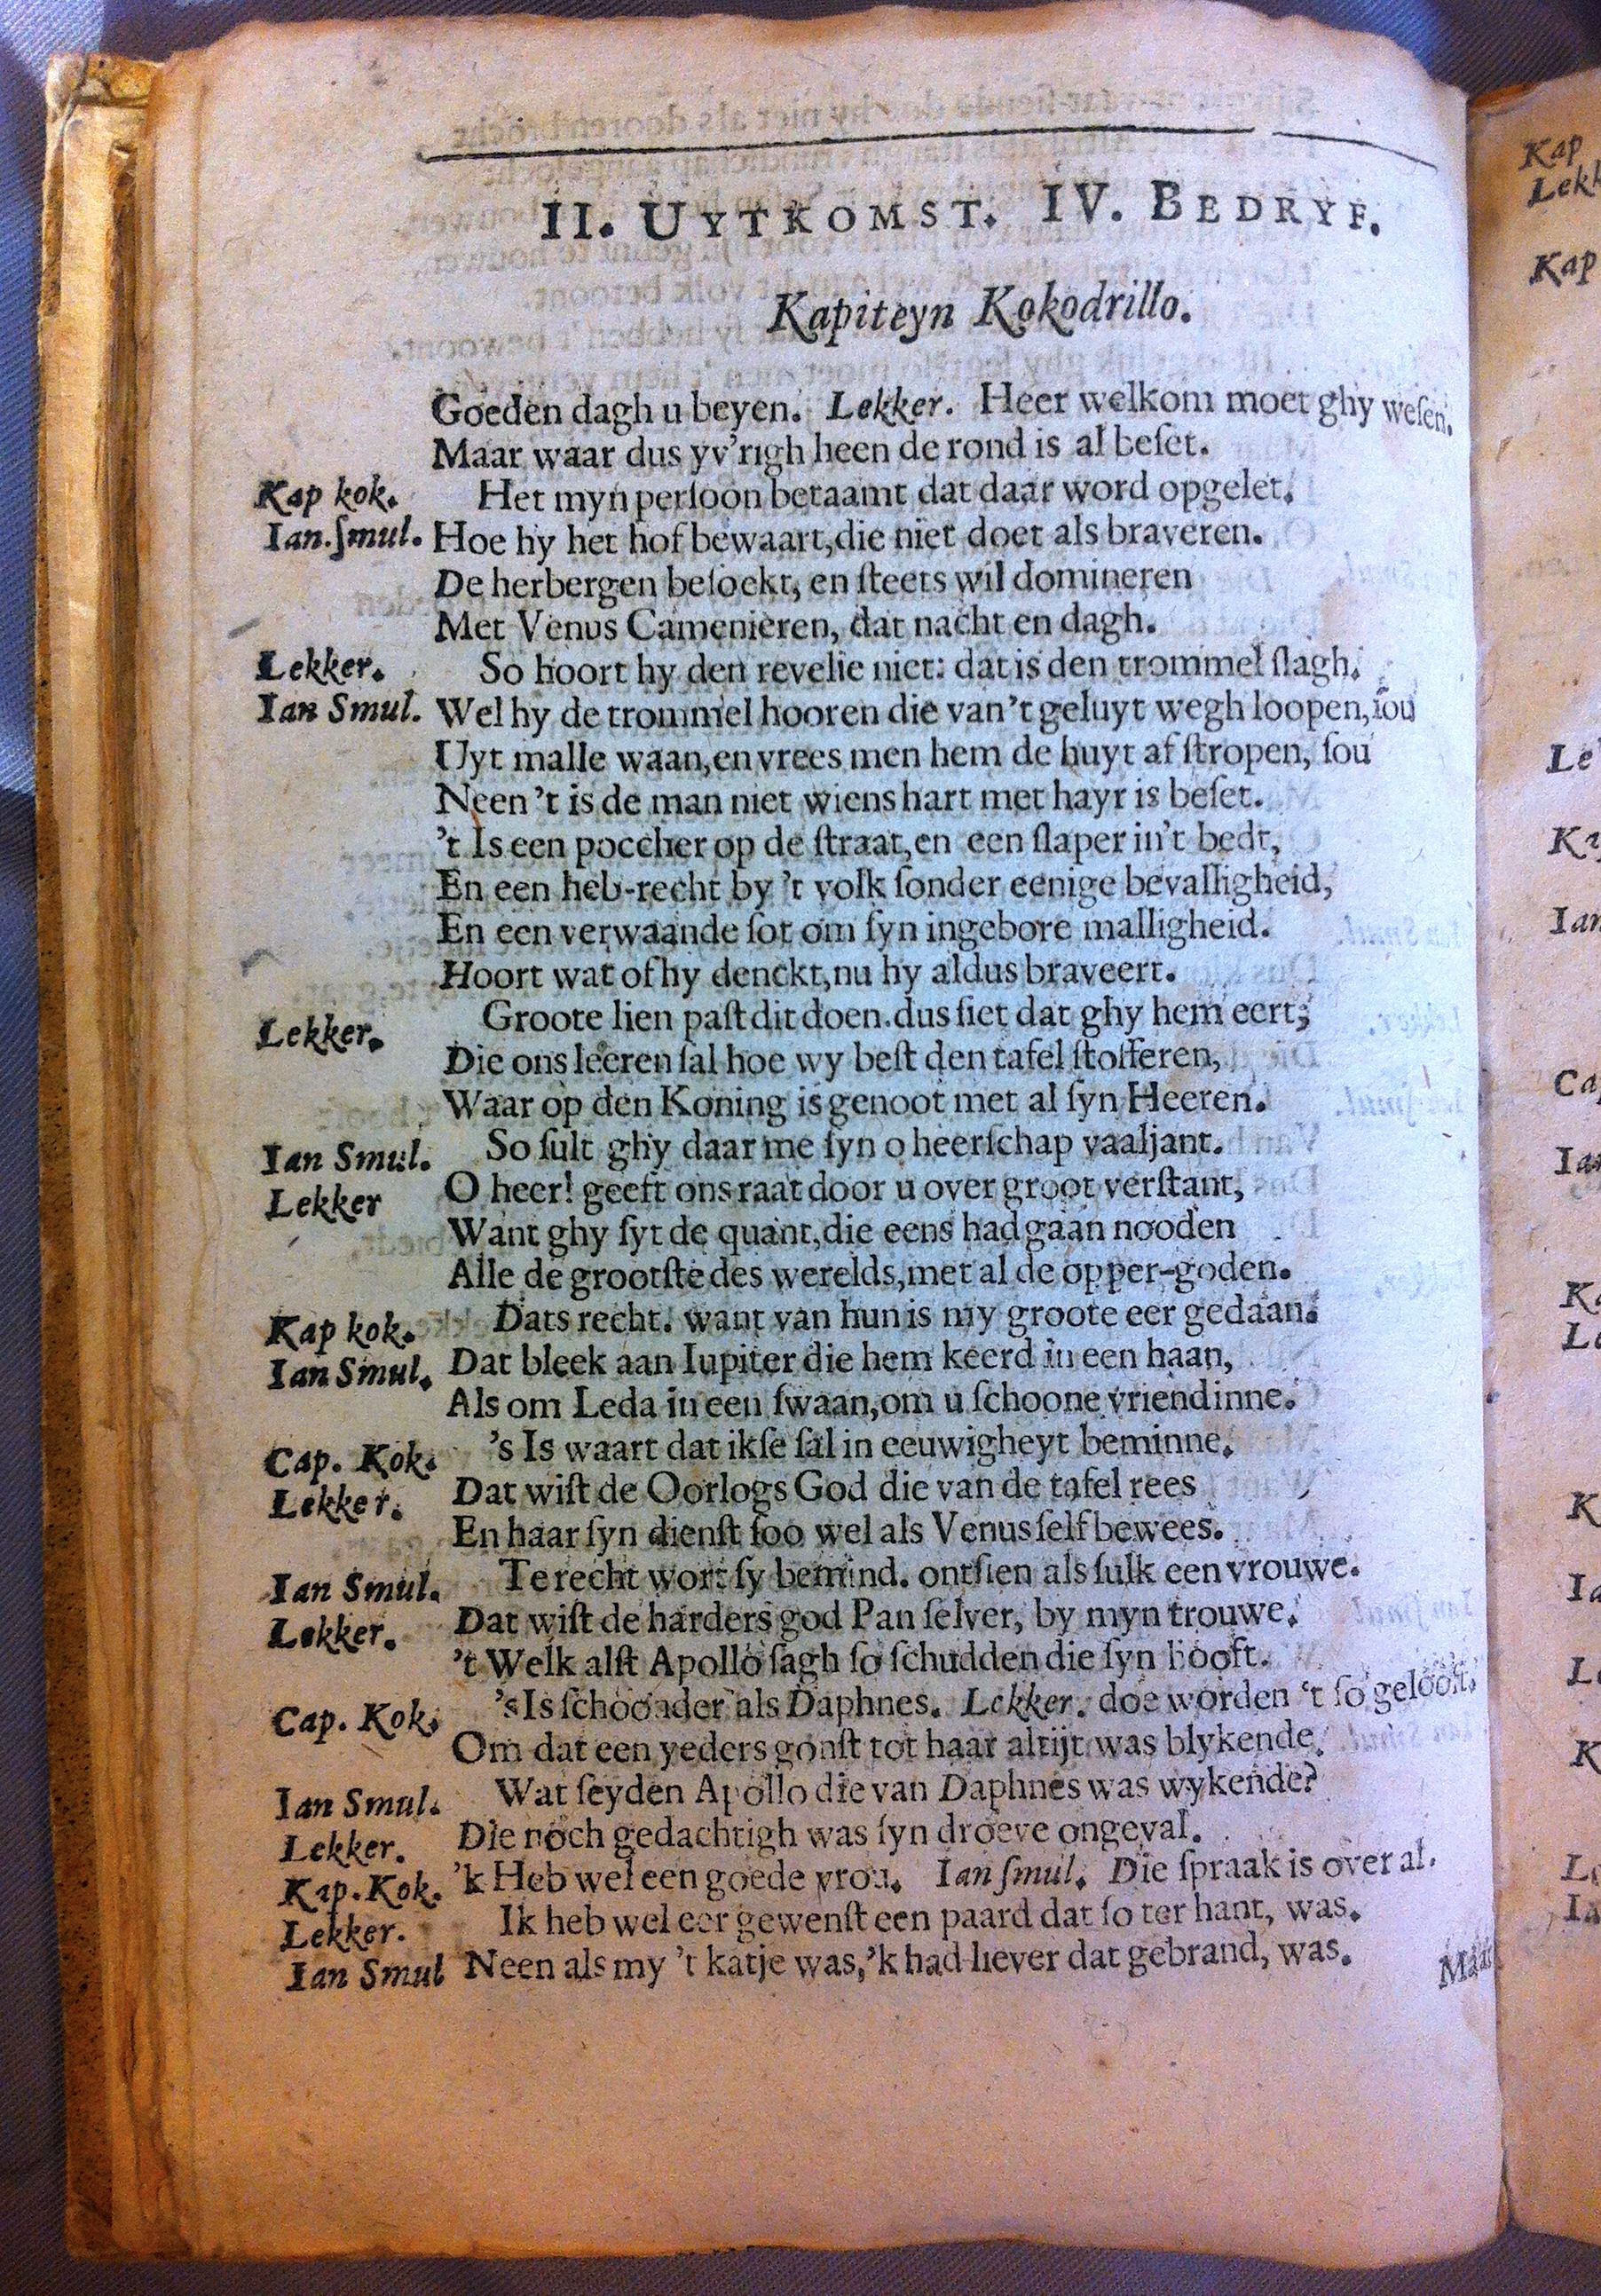 II. UYTKOMST. IV. BEDRYF.
Kapiteyn Kokodrillo.
Goeden dagh u beyen. Lekker. Heer welkom moet ghy weſen.
Maar waar dus yv'righ heen de rond is al beſet.
Kap kok. Het myn perſoon betaamt dat daar word opgelet.
Ian.ſmul. Hoe hy het hof bewaart, die niet doet als braveren.
De herbergen beſoekt, en ſteets wil domineren
Met Venus Camenieren, dat nacht en dagh.
Lekker. So hoort hy den revelie niet: dat is den trommel ſlagh.
Ian Smul. Wel hy de trommel hooren die van't geluyt wegh loopen, ſou
Uyt malle waan, en vrees men hem de huyt af ſtropen, ſou
Neen 't is de man niet wiens hart met hayr is beſet.
't Is een poccher op de ſtraat, en een ſlaper in't bedt,
En een heb-recht by 't volk ſonder eenige bevalligheid,
En een verwaande ſot om ſyn ingebore malligheid.
Hoort wat of hy denckt, nu hy aldus braveert.
Lekker. Groote lien paſt dit doen. dus ſiet dat ghy hem eert;
Die ons leeren ſal hoe wy beſt den tafel ſtofferen,
Waar op den Koning is genoot met al ſyn Heeren.
Ian Smul. So ſult ghy daar me ſyn o heerſchap vaaljant.
Lekker O heer! geeft ons raat door u over groot verſtant,
Want ghy ſyt de quant, die eens had gaan nooden
Alle de grootſte des werelds, met al de opper-goden.
Kap kok. Dats recht. want van hun is my groote eer gedaan.
Ian Smul. Dat bleek aan Iupiter die hem keerd in een haan,
Als om Leda in een ſwaan, om u ſchoone vriendinne.
Cap. Kok. 's Is waart dat ikſe ſal in eeuwigheyt beminne.
Lekker. Dat wiſt de Oorlogs God die van de tafel rees
En haar ſyn dienſt ſoo wel als Venus ſelf bewees.
Ian Smul. Te recht wort ſy bemind. ontſien als ſulk een vrouwe.
Lekker. Dat wiſt de harders god Pan ſelver, by myn trouwe.
't Welk alſt Apollo ſagh ſo ſchudden die ſyn hooft.
Cap. Kok. 's Is ſchoonder als Daphnes. Lekker. doe worden 't ſo gelooft.
Om dat een yeders gonſt tot haar altijt was blykende.
Ian Smul. Wat ſeyden Apollo die van Daphnes was wykende?
Lekker. Die noch gedachtigh was ſyn droeve ongeval.
Kap. Kok. 'k Heb wel een goede vrou. Ian ſmul. Die ſpraak is over al.
Lekker. Ik heb wel eer gewenſt een paard dat ſo ter hant, was.
Ian Smul Neen als my 't katje was, 'k had liever dat gebrand, was.
Maar
Kap
Lekk
Kap